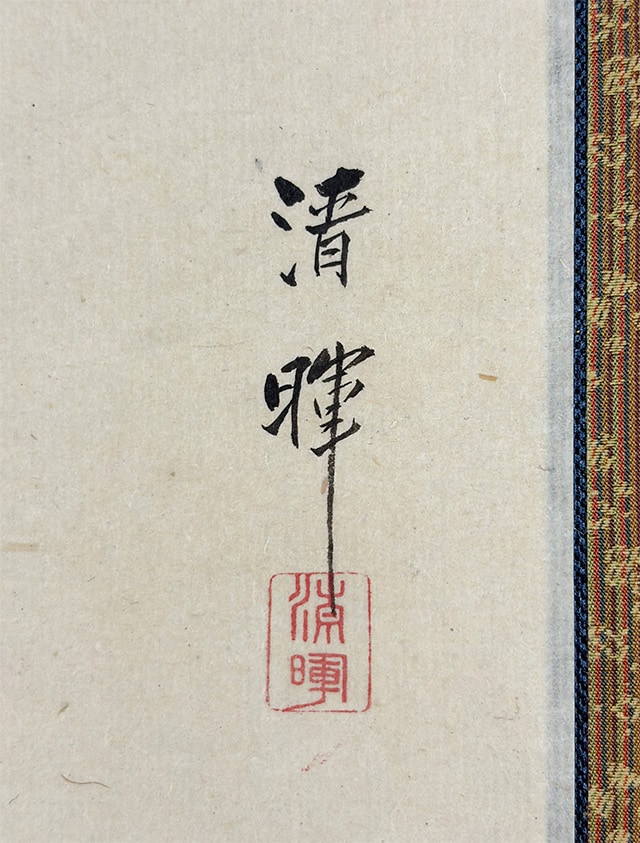 清暉
清暉